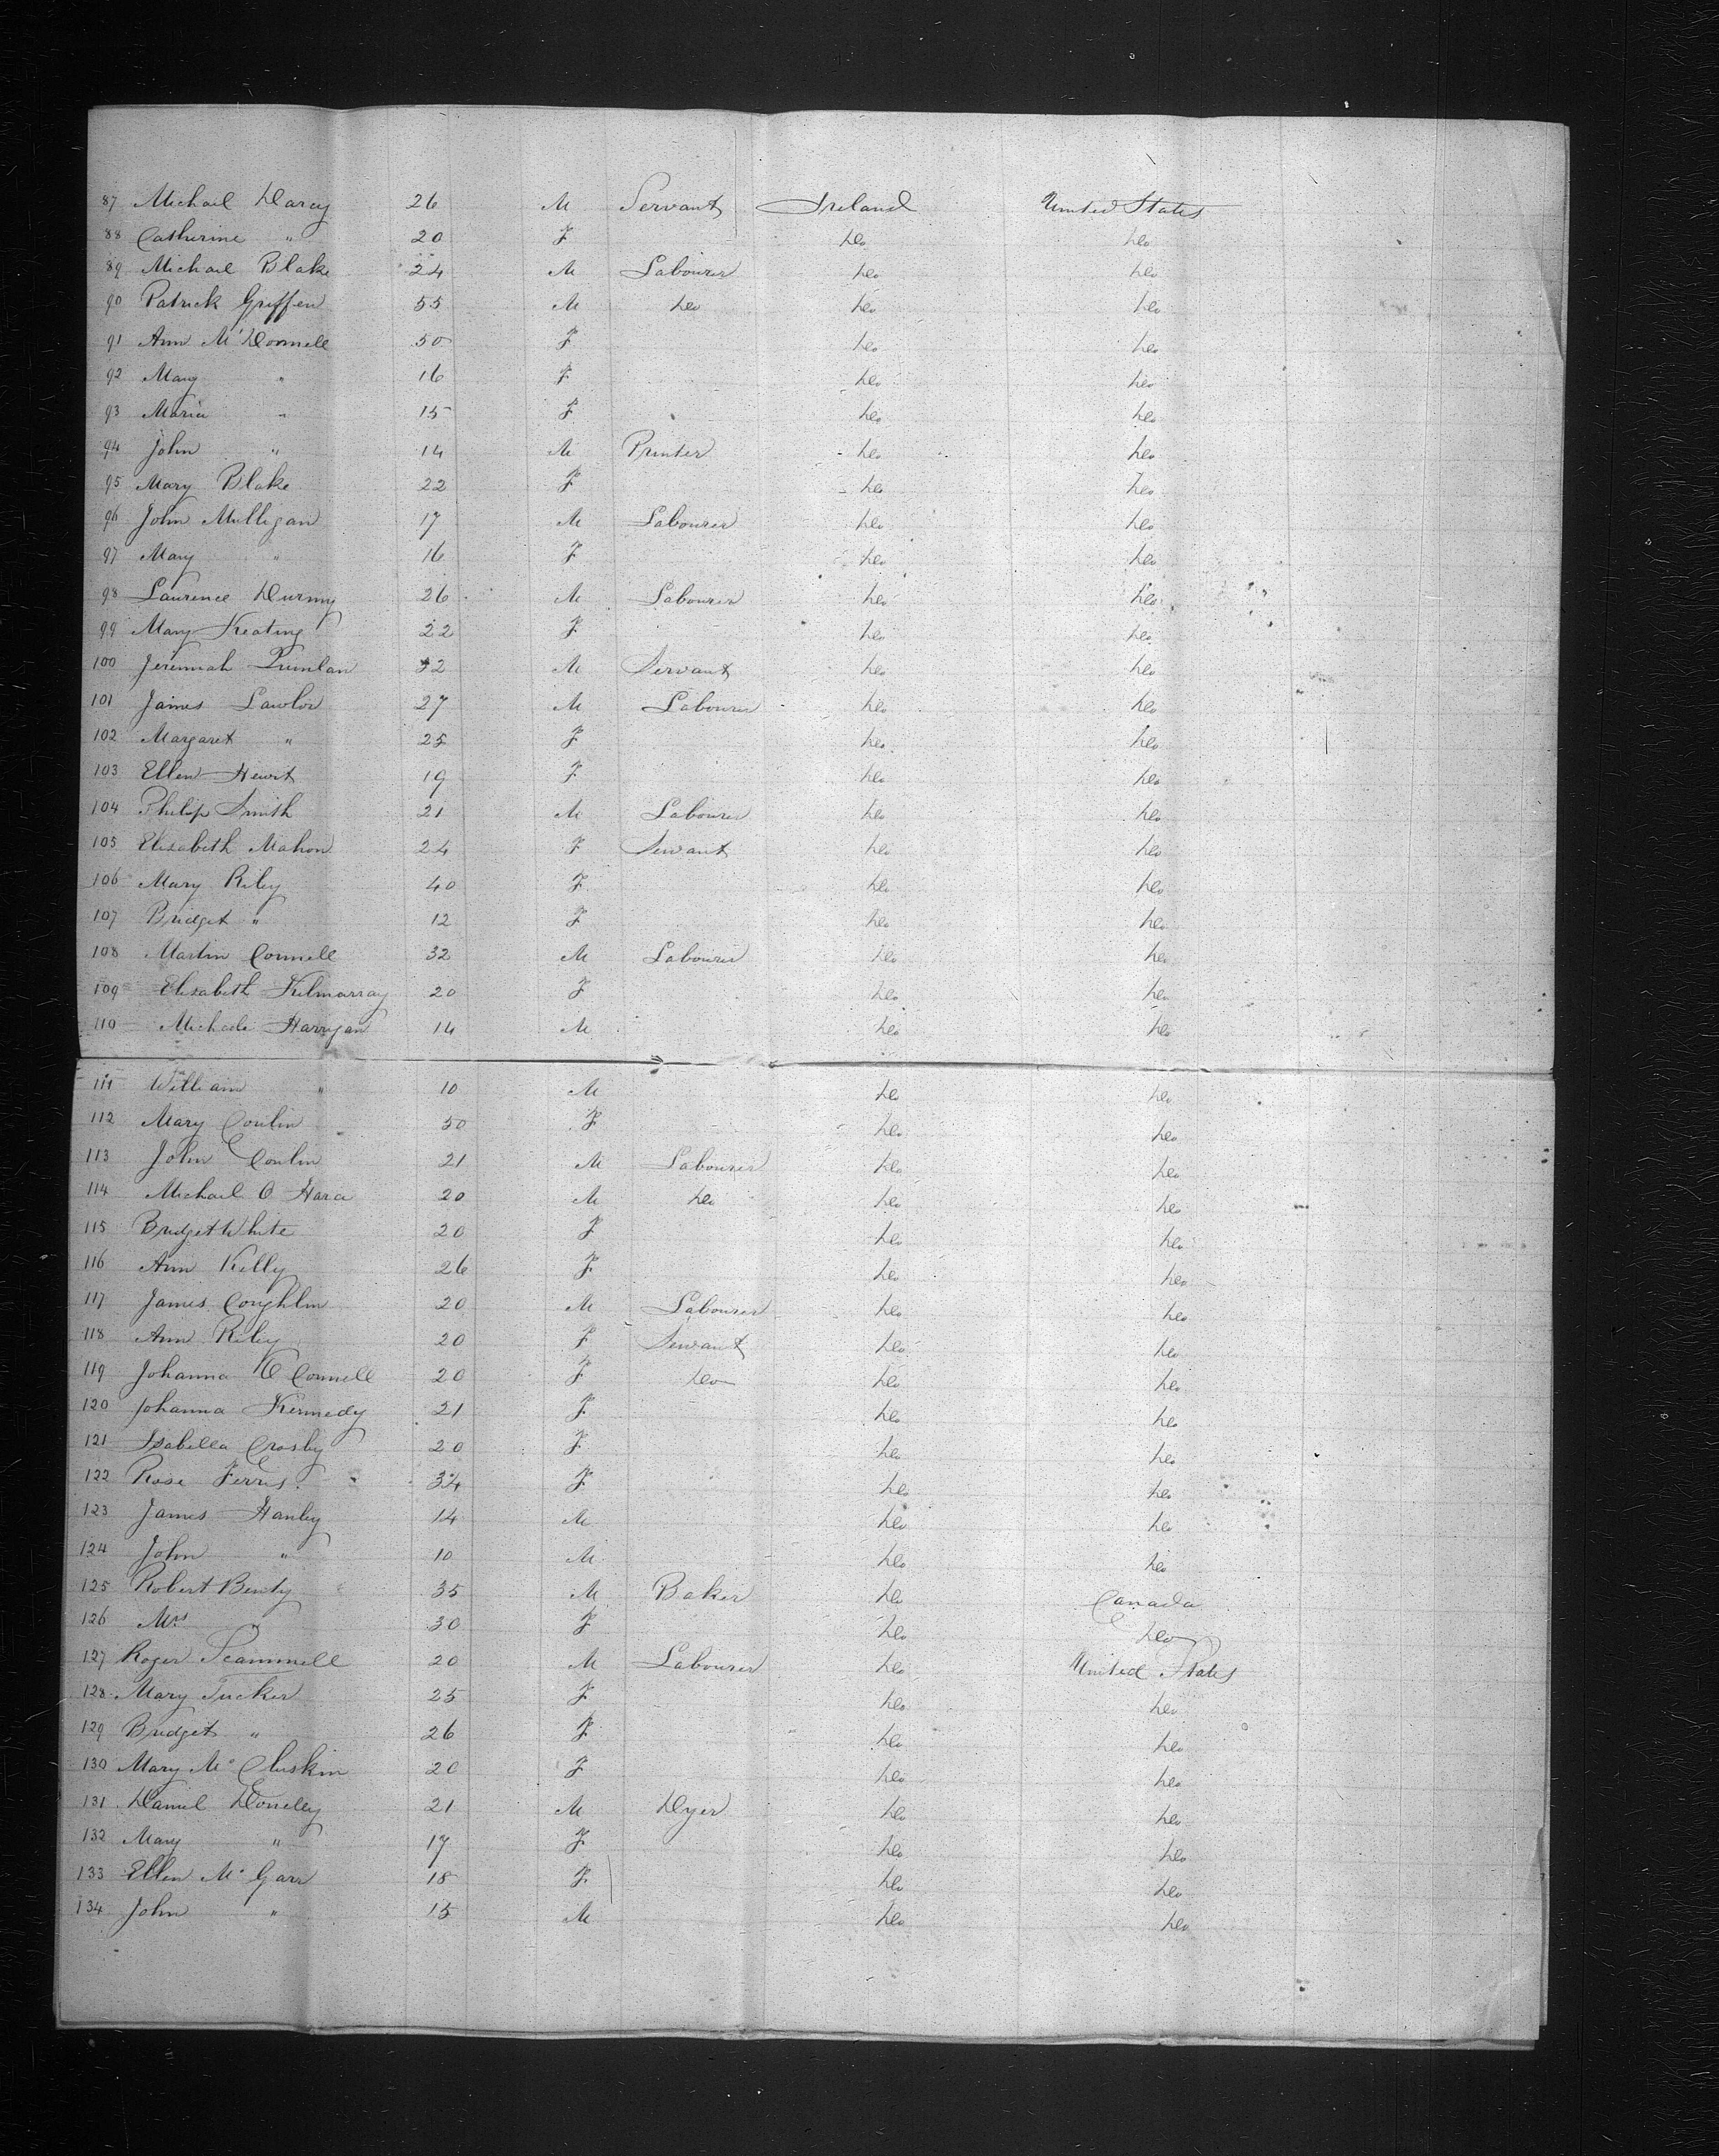 87 Michael Darcy 26 M Servant Ireland United States
88 Catherine " 20 F Do Do
89 Michael Blake 24 M Labourer Do Do
90 Patrick Griffen 55 M Do Do Do
91 Ann McDonnell 50 F Do Do
92 Mary " 16 F Do Do
93 Maria " 15 F Do Do
94 John " 14 M Printer Do Do
95 Mary Blake 22 F Do Do
96 John Mulligan 17 M Labourer Do Do
97 Mary " 16 F Do Do
98 Laurence 26 M Labourer Do Do
99 Mary Keating 22 F Do Do
100 Jeremiah Quinlan 32 M Servant Do Do
101 James Lawlor 27 M Labourer Do Do
102 Margaret " 25 F Do Do
103 Ellen 19 F Do Do
104 Philip Smith 21 M Labourer Do Do
105 Elizabeth Mahon 24 F Servant Do Do
106 Mary Riley 40 F Do Do
107 Bridget " 12 F Do Do
108 Martin Connell 32 M Labourer Do Do
109 Elizabeth Kilmurray 20 F Do Do
110 Harrigan 14 M Do Do
111 William " 10 M Do Do
112 Mary Conlin 50 F Do Do
113 John Conlin 21 M Labourer Do Do
114 Michael O Hara 20 M Do Do Do
115 Bridget White 20 F Do Do
116 Ann Kelly 26 F Do Do
117 James Coughlin 20 M Labourer Do Do
118 Ann Riley 20 F Servant Do Do
119 Johanna O Connell 20 F Do Do Do
120 Johanna Kennedy 21 F Do Do
121 Isabella Crosby 20 F Do Do
122 Rose Ferris 34 F Do Do
123 James Hanley 14 M Do Do
124 John " 10 M Do Do
125 Robert 35 M Baker Do Canada
126 Mrs " 30 F Do Do
127 Roger Scammell 20 M Labourer Do United States
128 Mary Tucker 25 F Do Do
129 Bridget " 26 F Do Do
130 Mary McCluskin 20 F Do Do
131 Daniel Doneley 21 M Dyer Do Do
132 Mary " 17 F Do Do
133 Ellen McGarr 18 F Do Do
134 John " 15 M Do Do